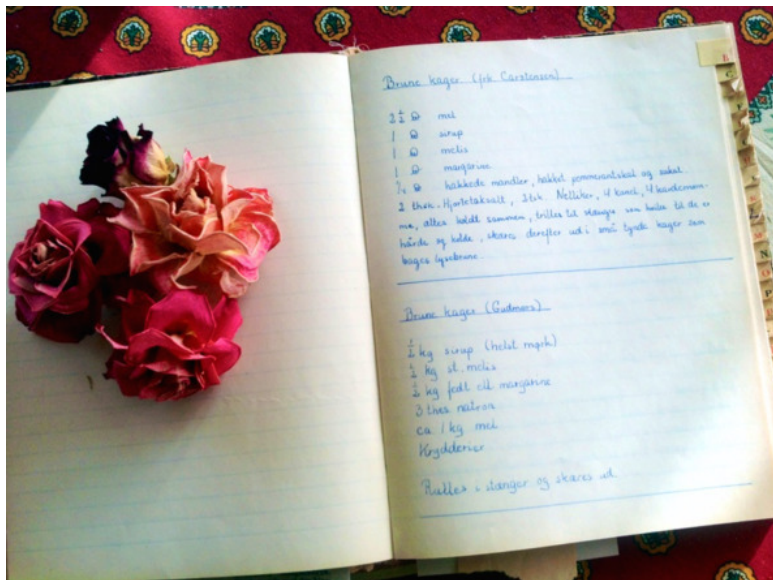 Brune kager (frk Carstensen)
2 1/2 ℔ mel
1 ℔ sirup
1 ℔ melis
1 ℔ margarine
1/4 ℔ hakkede mandler, hakket pommeranskal og sukat.
2 thsk. Hjortetaksalt, 2 tsk. Nelliker, 4 kanel, 4 kardemom-
me, alles holdt sammen, trilles til stænger som hviler til de er
hårde og kolde, skæres derefter ud i små tynde kager som
bages lysebrune.
Brune kager (Gudmors)
1/2 kg sirup (helst mørk)
1/2 kg st. melis
1/2 kg fedt ell margarine
3 thes natron
ca 1 kg mel
Krydderier
Rulles i stænger og skæres ud.
L
C
N
O
P